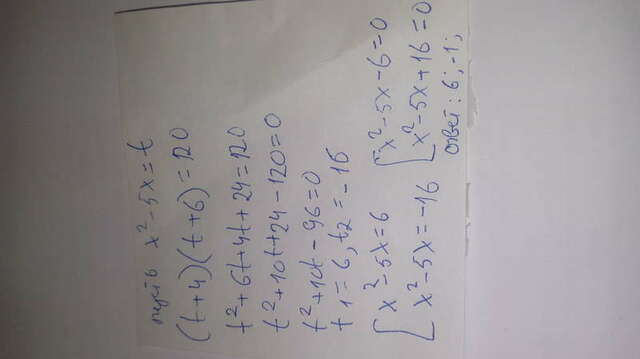 пусть x²-5x=t
(t+4)(t+6)=120
t²+6t+4t+24=120
t²+10t+24-120=0
t²+10t-96=0
t1=6, t2=-16
[x²-5x=6 [x²-5x-6=0
x²-5x=-16 x²-5x+16=0
ответ: 6; -1;